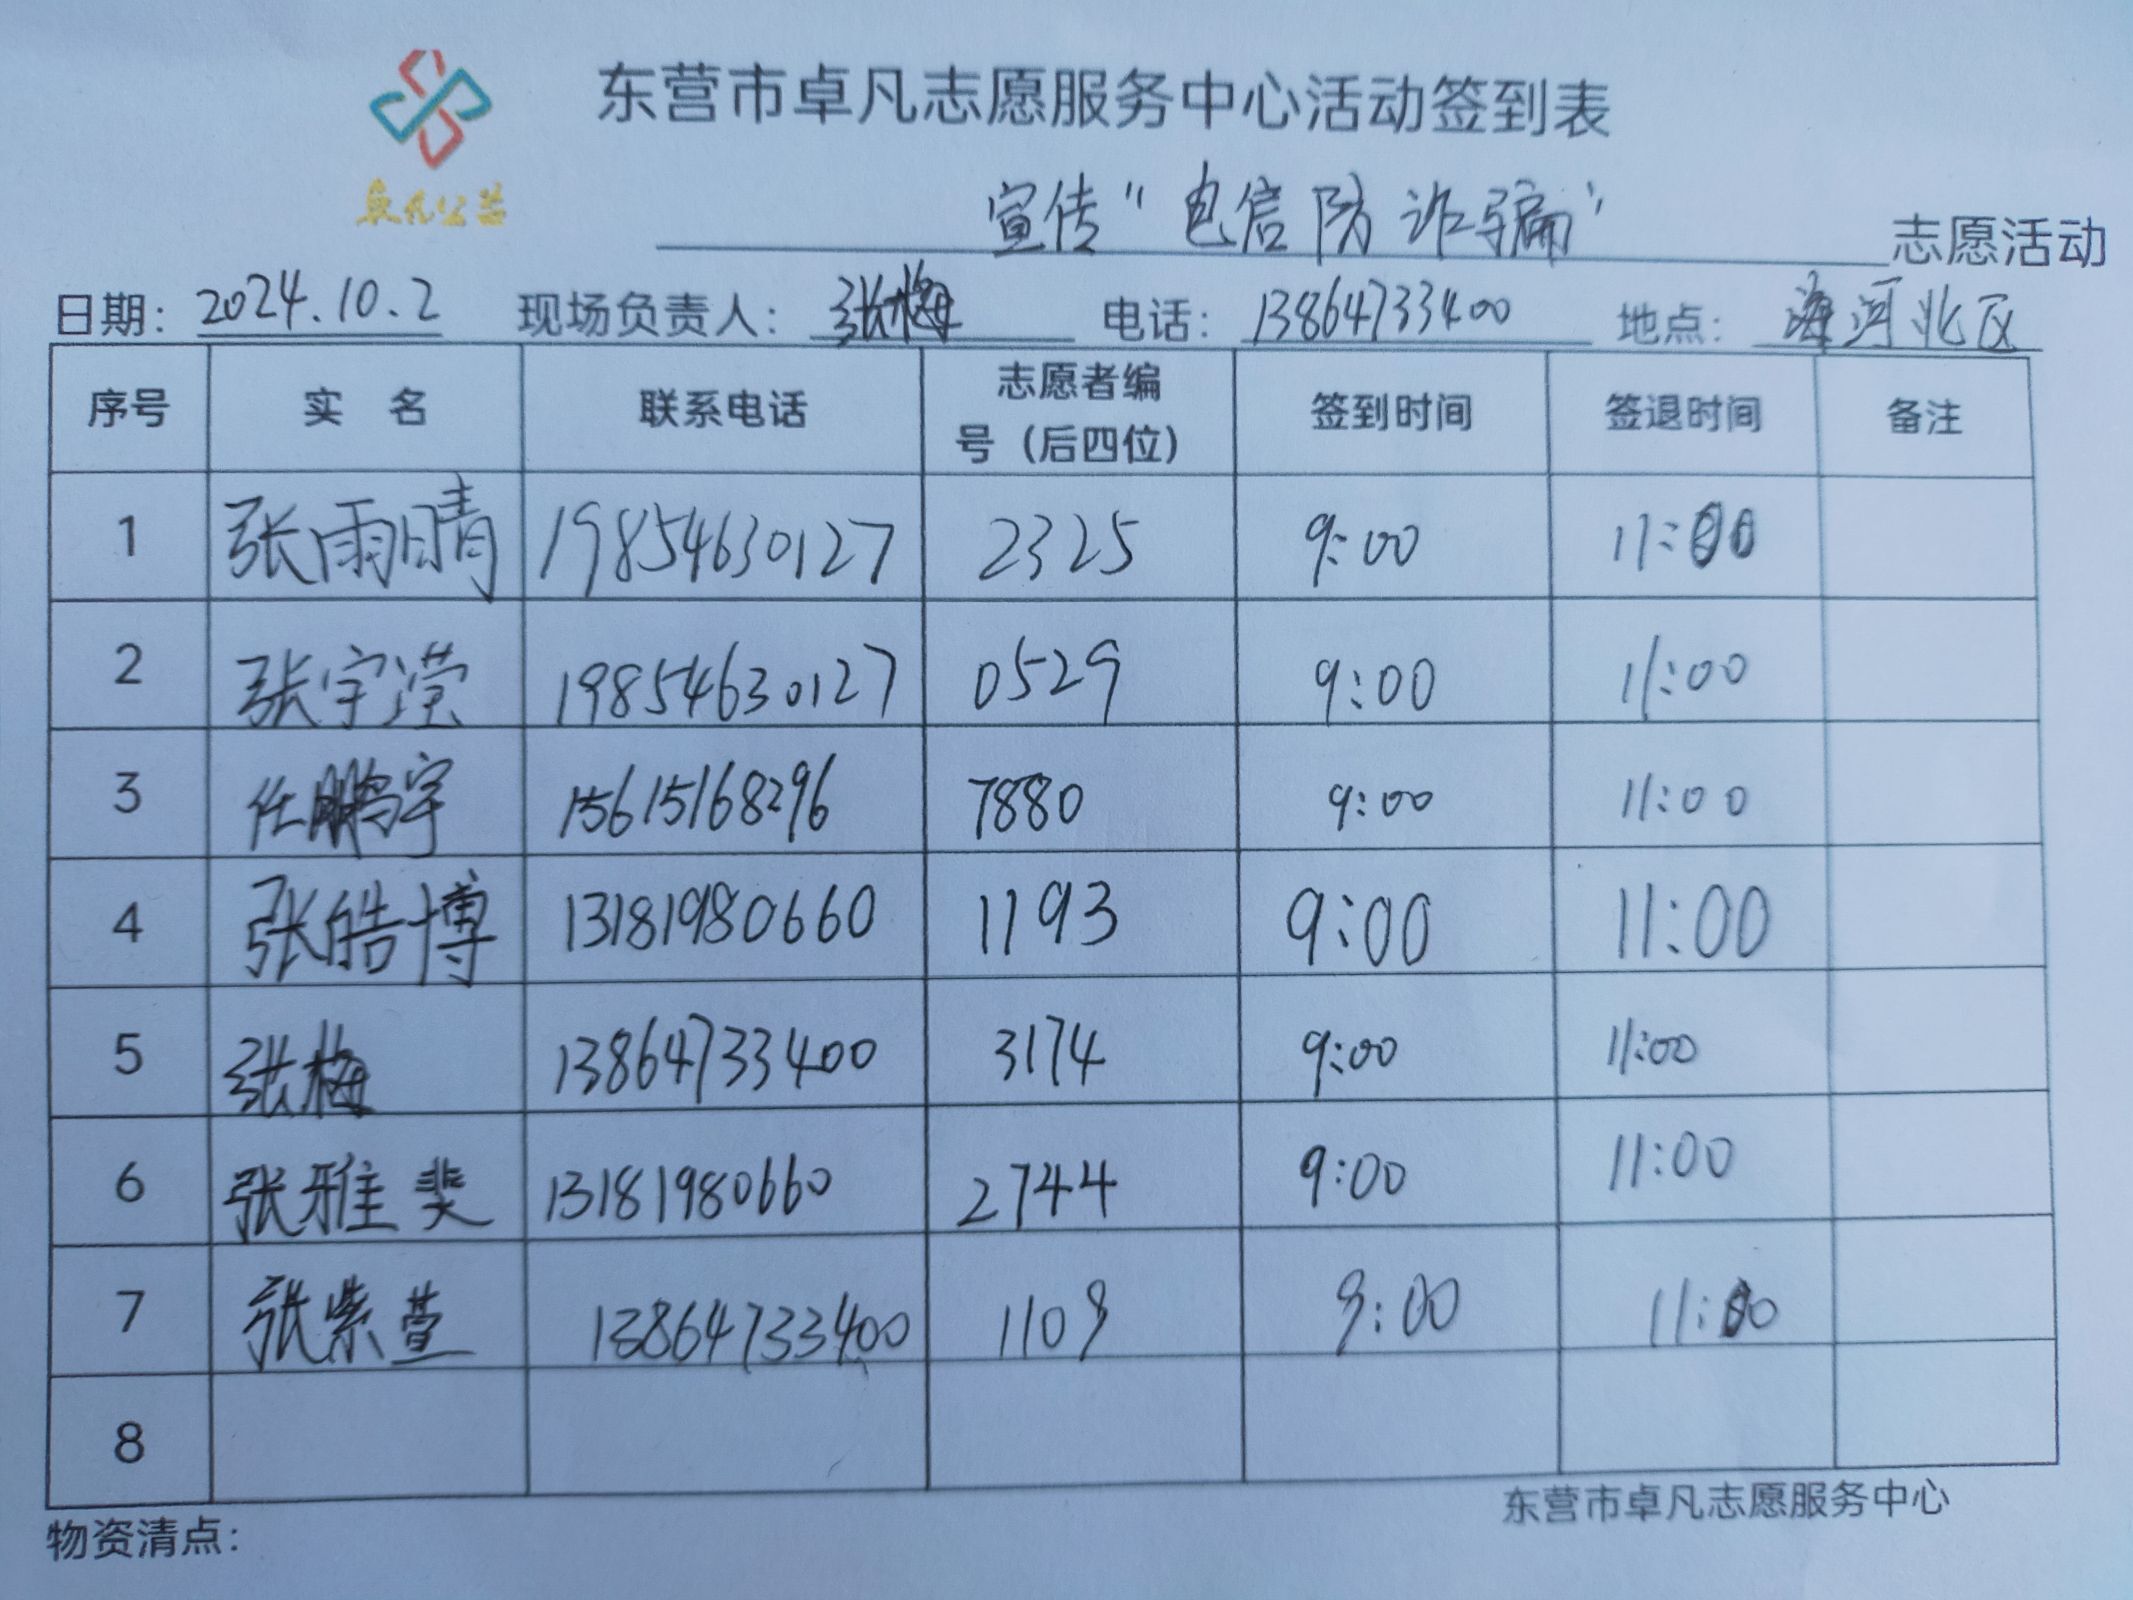 东营市卓凡志愿服务中心活动签到表
卓凡公益
宣传“电信防诈骗” 志愿活动
日期：2024.10.2 现场负责人：张梅 电话：13864733400 地点：海河北区
序号 实 名 联系电话 志愿者编号（后四位） 签到时间 签退时间 备注
1 张雨晴 19854630127 2325 9:00 11:00
2 张宇滢 19854630127 0529 9:00 11:00
3 任鹏宇 15615168296 7880 9:00 11:00
4 张皓博 13181980660 1193 9:00 11:00
5 张梅 13864733400 3174 9:00 11:00
6 张雅斐 13181980660 2744 9:00 11:00
7 张紫萱 13864733400 1109 9:00 11:00
8
东营市卓凡志愿服务中心
物资清点：